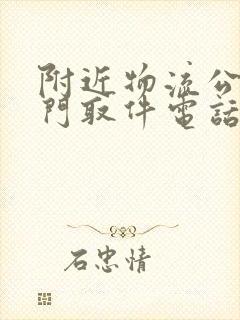 附近物流公
門取件電話
石忠情